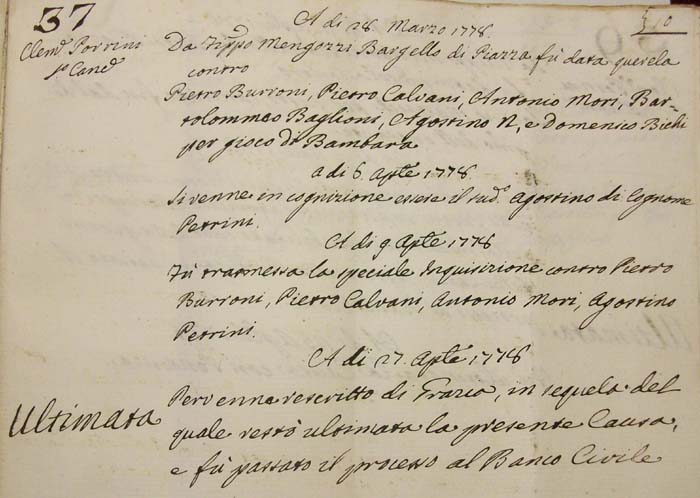 37
510
Clem.e Porrini
p.o Canc.e
A di 28. Marzo 1778.
Da Filippo Mengozzi Bargello di Piazza fù data querela
contro
Pietro Burroni, Pietro Calvani, Antonio Mori, Bar-
tolommeo Baglioni, Agostino N, e Domenico Bichi
per gioco di Bambara
a di 6. Aple 1778.
Si venne in cognizione essere il sud.o Agostino di Cognome
Petrini.
A di 9 Aple 1778
Fù trasmessa la speciale Inquisizione contro Pietro
Burroni, Pietro Calvani, Antonio Mori, Agostino
Petrini.
A di 27. Aple 1778
Ultimata
Pervenne rescritto di Grazia, in sequela del
quale restò ultimata la presente Causa,
e fù passato il processo al Banco Civile